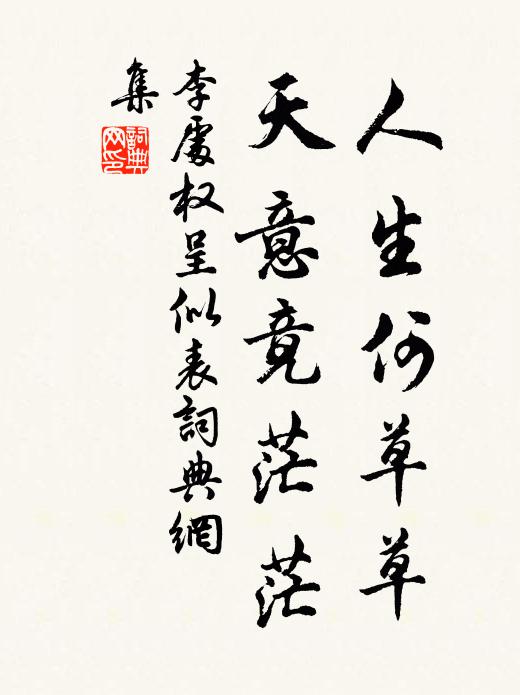 人生何草草
天意竟茫茫
李處权呈似表詞典網
集
詞典網印